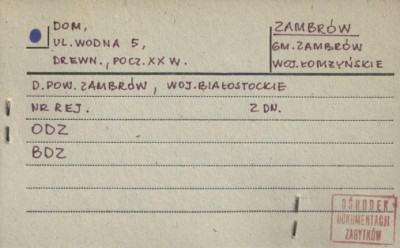 DOM,
UL. WODNA 5,
DREWN., POCZ. XX W.
ZAMBRÓW
GM. ZAMBRÓW
WOJ. ŁOMŻYŃSKIE
D. POW. ZAMBRÓW, WOJ. BIAŁOSTOCKIE
NR REJ. Z DN.
ODZ
BDZ
OŚRODEK
DOKUMENTACJI
ZABYTKÓW